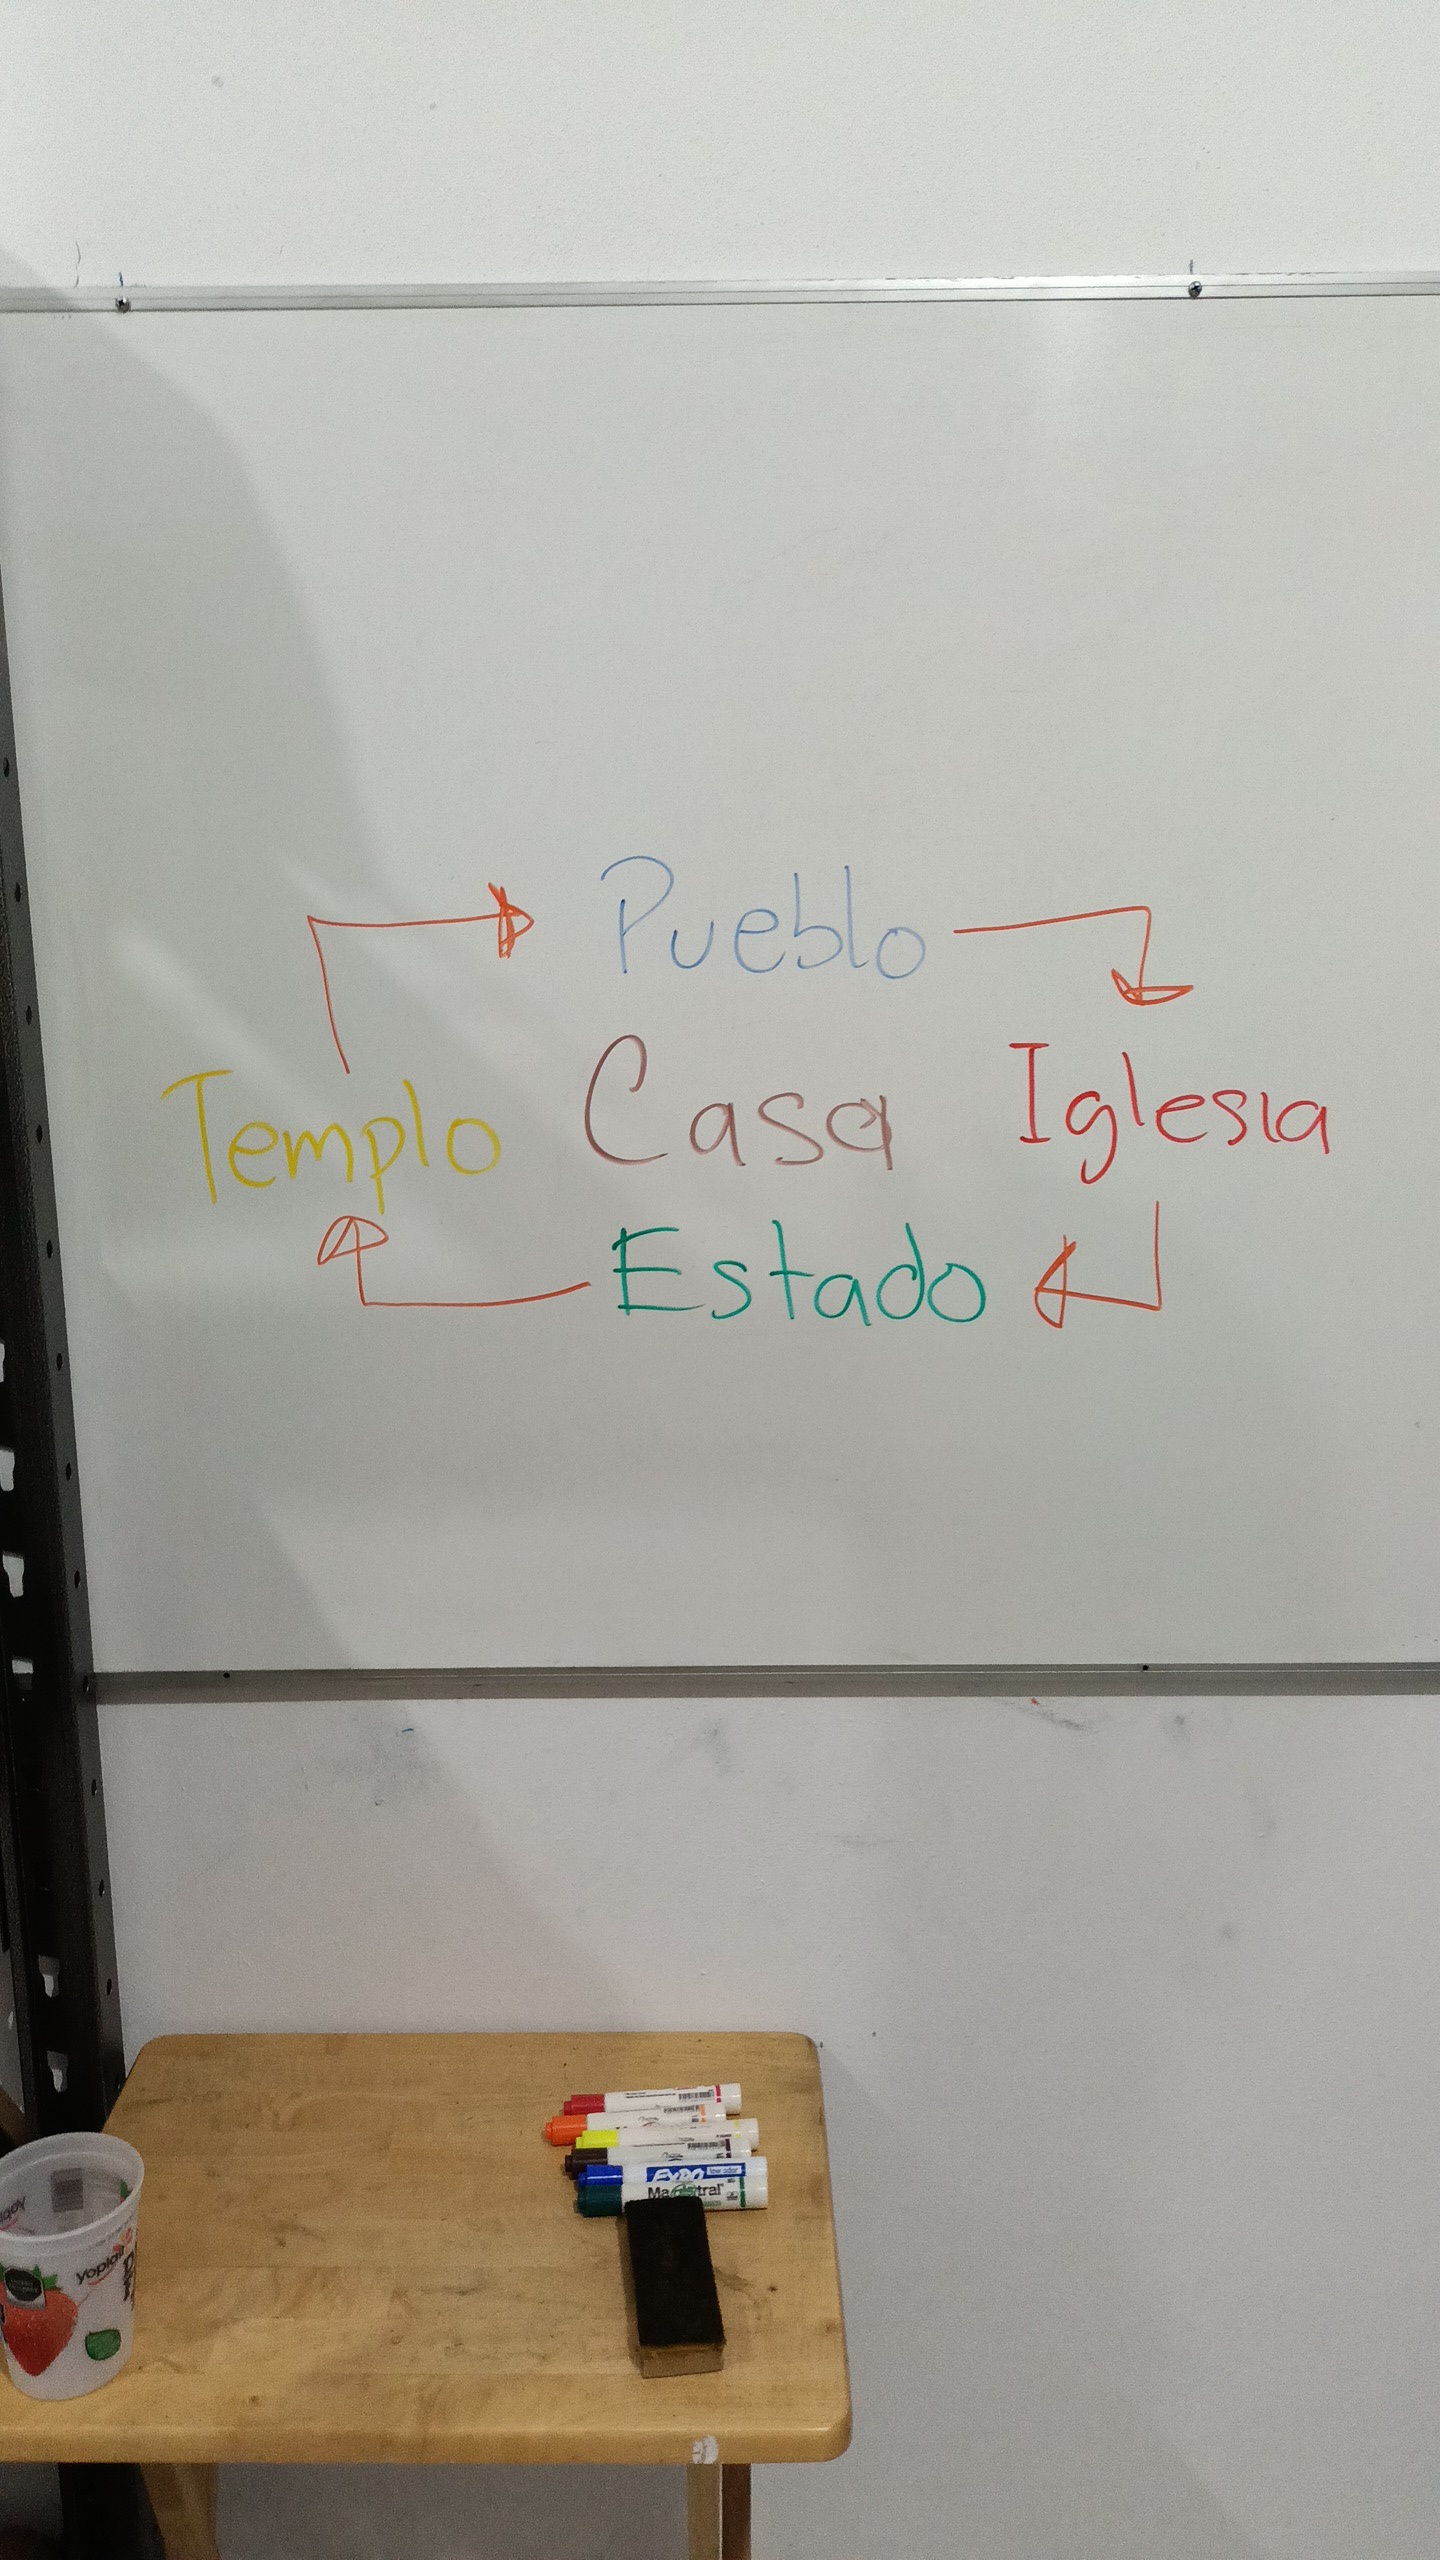 Pueblo
Templo Casa Iglesia
Estado
EXPO low odor
Magistral
yoplait